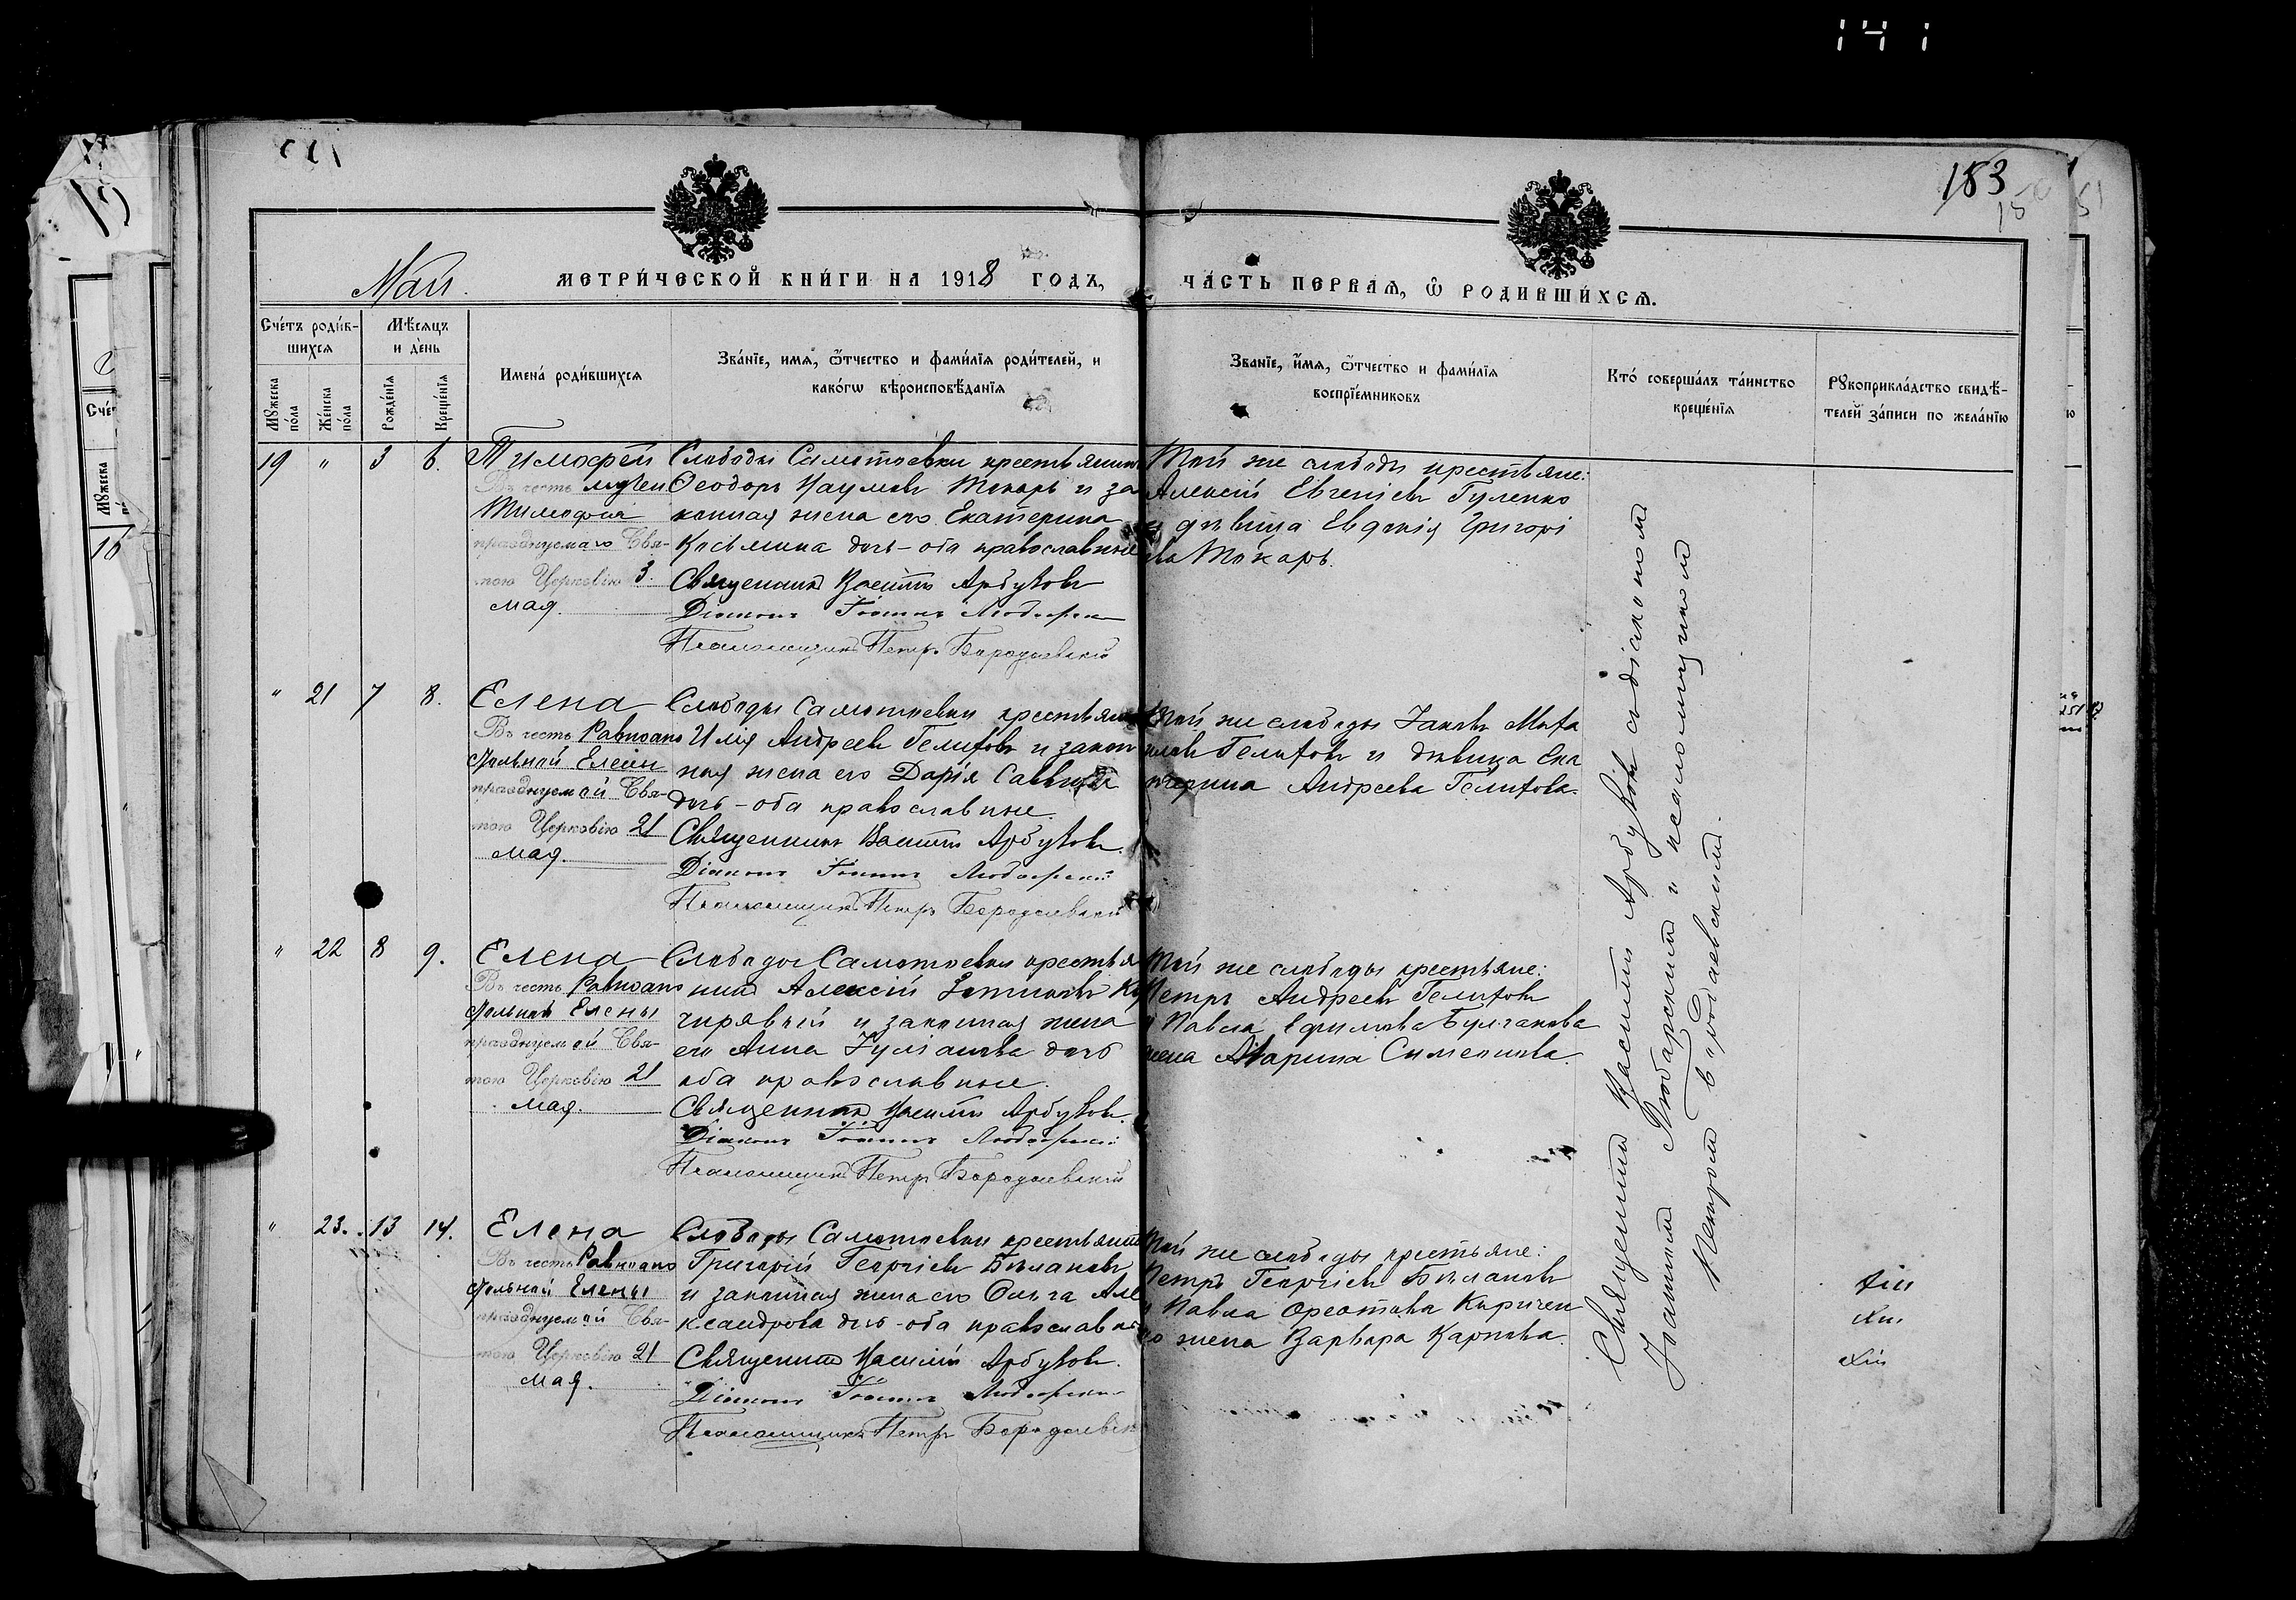 183
Май.
МЕТРИ́ЧЕСКОЙ КНИ́ГИ НА 1918 ГОДЪ,
ЧА́СТЬ ПЕРВАѦ, Ѡ РОДИВШИ́ХСѦ.
Сче́тъ роди́в-
шихсѧ
Мꙋ́жеска по́ла
Же́нска по́ла
Мѣ́сѧцъ
и де́нь
Рожде́нїѧ
Креще́нїѧ
Имена́ роди́вшихсѧ
Зва́нїе, имѧ, ѿтчество и фами́лїѧ роди́телей, и
како́гѡ вѣроисповѣ́данїѧ
Зва́нїе, и́мѧ, ѿтчество и фами́лїѧ
воспрїе́мниковъ
Кто́ соверша́лъ та́инство
креще́нїѧ
Рꙋкоприкла́дство свидѣ́-
телей за́писи по жела́нїю
19 " 3 6.
Тимофей
Въ честь мучен
Тимофея
празднуемаго Свя-
тою Церковію 3
мая.
Слободы Самотоевки крестьянинъ
Ѳеодоръ Наумовъ Токарь и за
конная жена его Екатерина
Косьмина дочь - оба православные
Священникъ Василій Арбузовъ
Діаконъ Іоаннъ Любарскій
Псаломщикъ Петръ Бородаевскій
Той же слободы крестьяне:
Алексій Евгеніевъ Гуленко
и дѣвица Евдокія Григорі
ева Токарь.
" 21 7 8.
Елена
Въ честь Равноапо
стольной Елены
празднуемой Свя-
тою Церковію 21
мая.
Слободы Самотоевки крестьянинъ
Илія Андреевъ Гелиховъ и закон
ная жена его Дарія Саввина
дочь - оба православные.
Священникъ Василій Арбузовъ.
Діаконъ Іоаннъ Любарскій
Псаломщикъ Петръ Бородаевскій
Той же слободы Іаковъ Миха
иловъ Гелиховъ и дѣвица Ека
терина Андреева Гелихова.
" 22 8 9.
Елена
Въ честь Равноапо
стольной Елены
празднуемой Свя-
тою Церковію 21
мая.
Слободы Самотоевки крестья
нинъ Алексій
чирявый и законная жена
его Анна Іуліанова дочь
оба православные.
Священникъ Василій Арбузовъ.
Діаконъ Іоаннъ Любарскій
Псаломщикъ Петръ Бородаевскій
Той же слободы крестьяне:
Петръ Андреевъ Гелиховъ
и Павла Ефимова Булгакова
жена Марина Симеонова.
" 23. 13 14.
Елена
Въ честь Равноапо
стольной Елены
празднуемой Свя-
тою Церковію 21
мая.
Слободы Самотоевки крестьянинъ
Григорій Георгіевъ Бѣлановъ
и законная жена его Ольга Але
ксандрова дочь - оба православные
Священникъ Василій Арбузовъ.
Діаконъ Іоаннъ Любарскій
Псаломщикъ Петръ Бородаевскій
Той же слободы крестьяне:
Петръ Георгіевъ Бѣлановъ
и Павла Орестова Киричен
ко жена Варвара Карпова.
Священникъ Василій Арбузовъ съ діакономъ
Іоанномъ Любарскимъ и псаломщикомъ
Петромъ Бородаевскимъ.